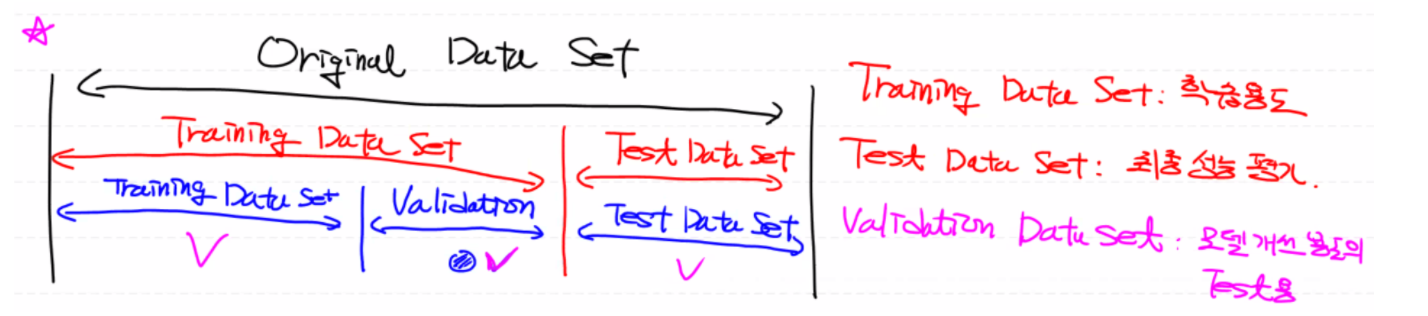 Original Data Set
Training Data Set
Test Data Set
Training Data Set
Validation
Test Data Set
Training Data Set: 학습용도
Test Data Set: 최종 성능 평가.
Validation Data Set: 모델 개선 용도의
Test용